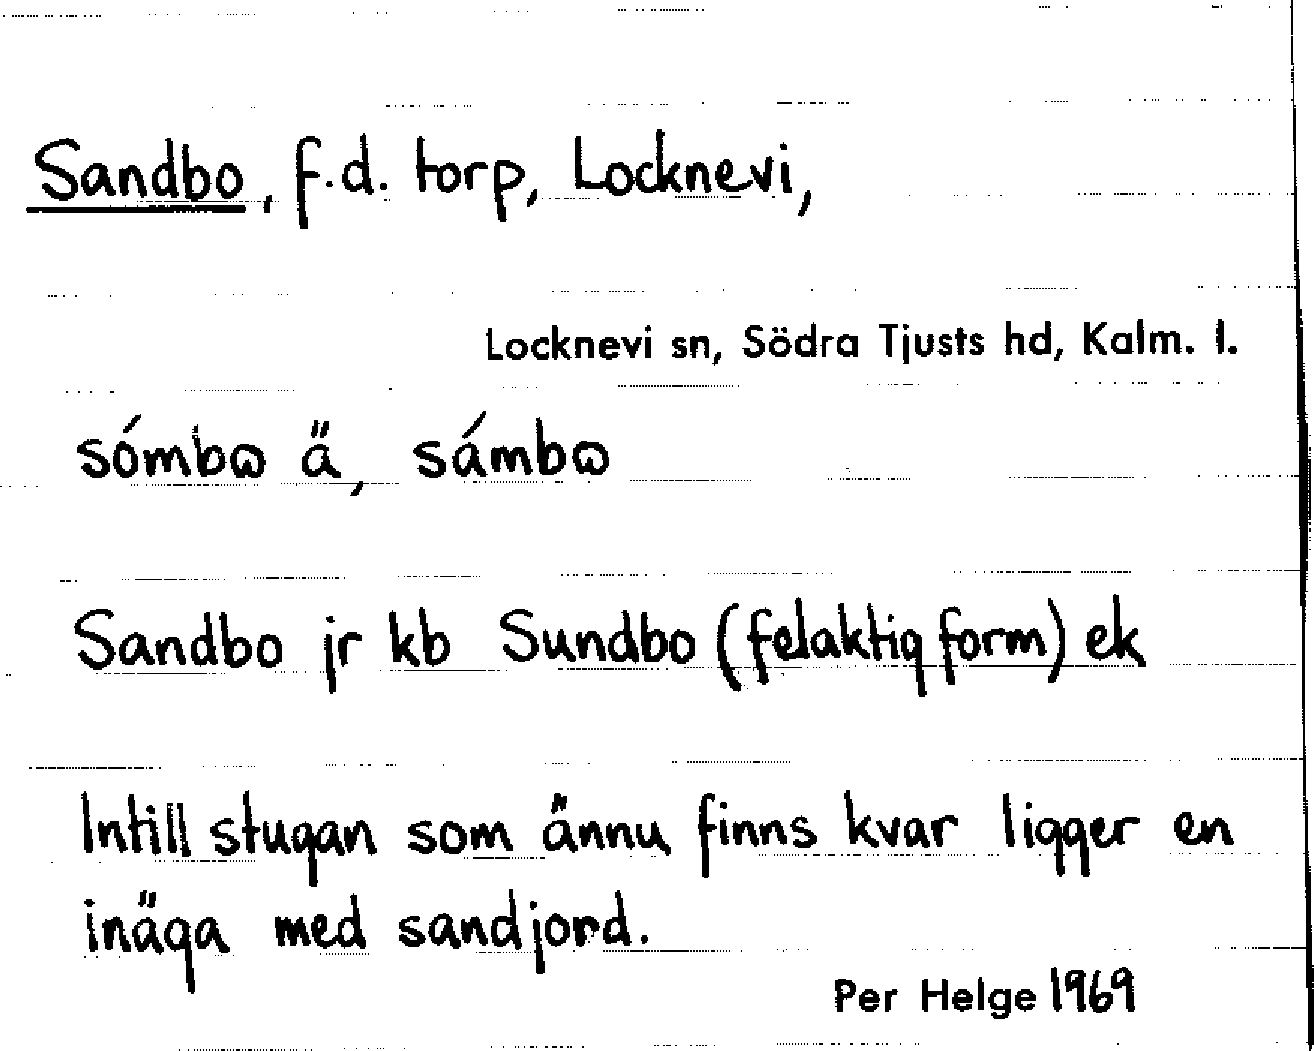 Sandbo, f.d. torp, Locknevi,
Locknevi sn, Södra Tjusts hd, Kalm. l.
sómbꞷ ä, sámbꞷ
Sandbo jr kb Sundbo (felaktig form) ek
Intill stugan som ännu finns kvar ligger en
inäga med sandjord.
Per Helge 1969